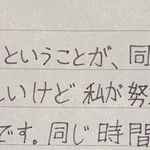 ということが、同
しいけど私が努
です。同じ時間